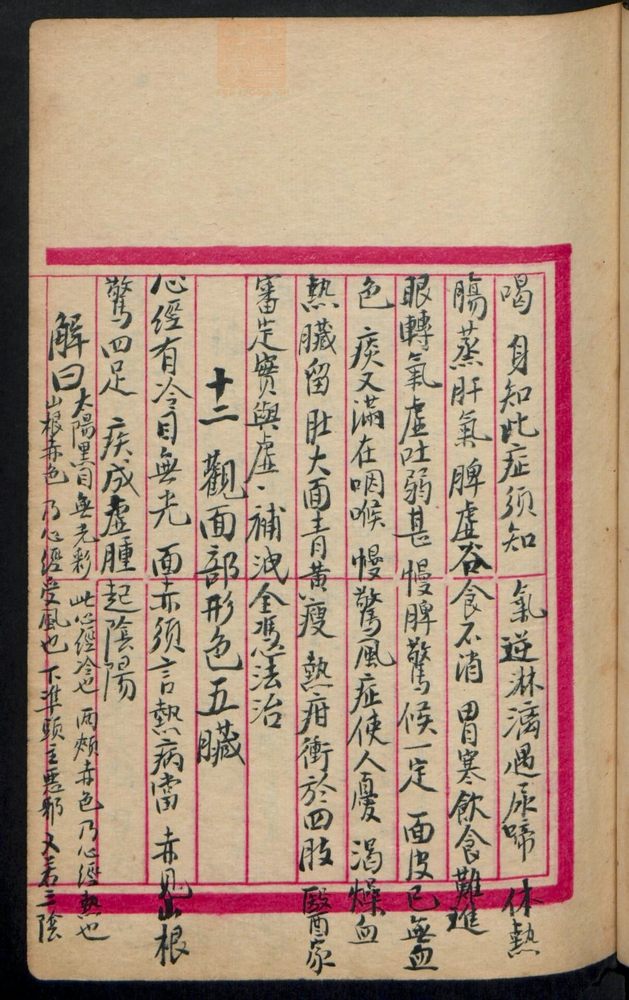 喝 身知此症須知 氣逆淋漓遇尿啼 体熱
腸蒸肝氣 脾虛谷食不消 胃寒飲食難進
眼轉氣虛吐弱甚 慢脾驚候一定 面皮已無血
色 痰又滿在咽喉 慢驚風症使人憂 渴燥血
熱臟留 肚大面青黃瘦 熱疳衝於四肢 醫家
審定實與虛 補洩全凴法治
十二 觀面部形色五臟
心經有冷目無光 面赤須言熱病當 赤見山根
驚四足 疾成虛腫起陰陽
解曰
太陽黑目無光彩 此心經冷也 兩頰赤色乃心經熱也
山根赤色 乃心經受風也 下準頭主惡邪 又若三陰